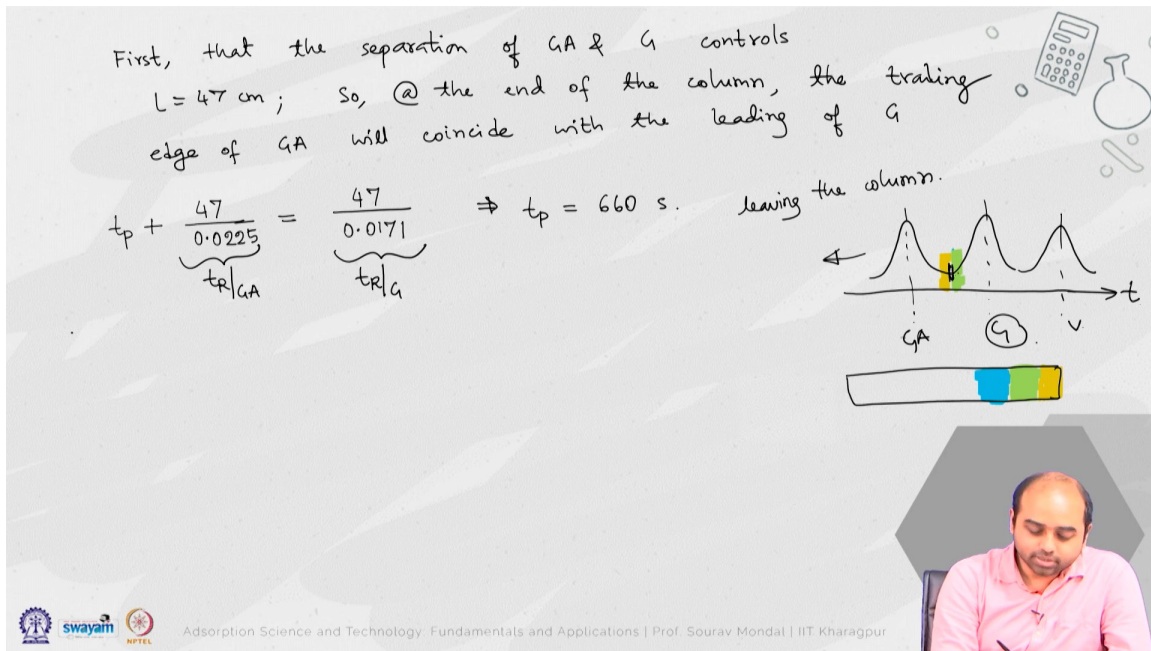 First, that the separation of GA & G controls
L = 47 cm ; So, @ the end of the column, the trailing
edge of GA will coincide with the leading of G
leaving the column.
tp + 47/0.0225 = 47/0.0171 ⇒ tp = 660 s.
tR|GA tR|G
t
GA G. V
swayam
NPTEL
Adsorption Science and Technology: Fundamentals and Applications | Prof. Sourav Mondal | IIT Kharagpur